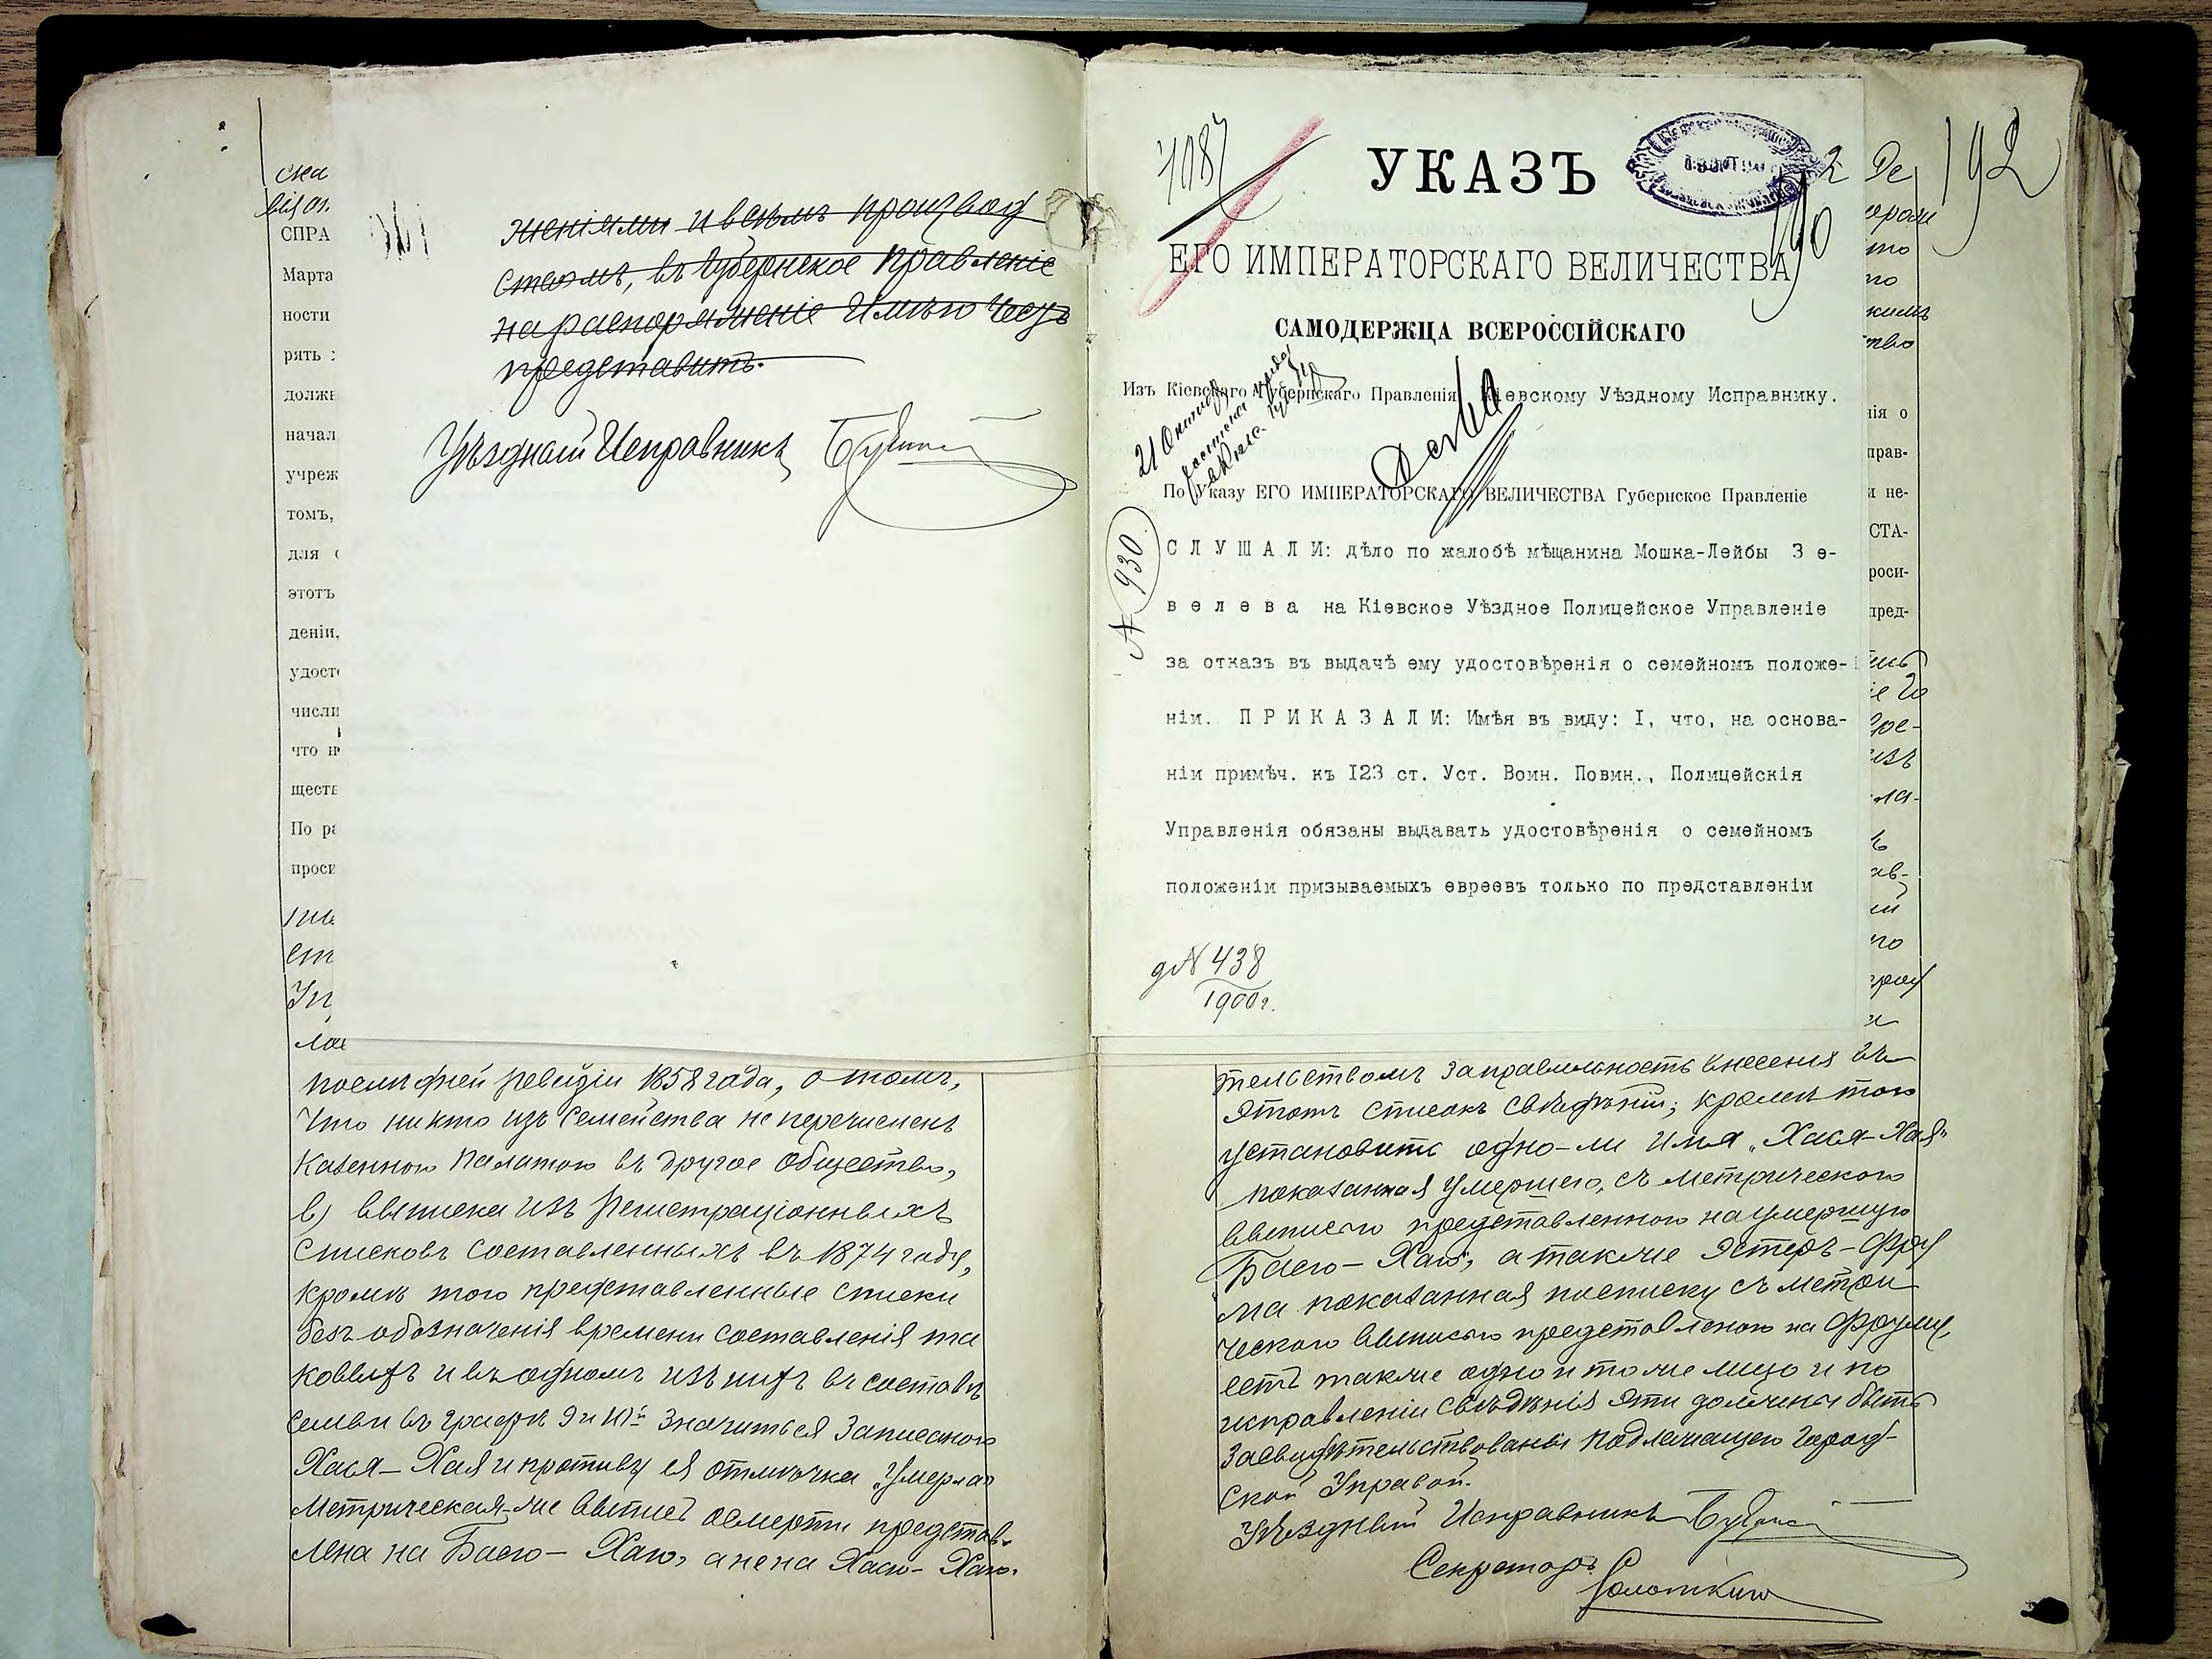 сна
СПРА
Марта
ности
рять
долж
начал
учреж
томъ,
для
этотъ
деніи,
удост
числи
что н
ществ
По ра
проси
женіями и всѣмъ производ
ствомъ, въ Губернское Правленіе
на распоряженіе Имѣю честь
представить.
Уѣздный Исправникъ
послѣдней ревизіи 1858 года, о томъ,
что никто изъ семейства не перечисленъ
Казенною Палатою въ другое общество,
в) выписка изъ регистраціонныхъ
списковъ составленныхъ въ 1874 году,
кромѣ того представленные списки
безъ обозначенія времени составленія та
ковыхъ и въ одномъ изъ нихъ въ составѣ
семьи въ графѣ 9 и 10й значиться записаною
Хася-Хая и противу ея отмѣтка „умерла"
Метрическая-же выпись о смерти представ-
лена на Басю-Хаю, а не на Хасю-Хаю.
4087
УКАЗЪ
2 Де
192
190
ЕГО ИМПЕРАТОРСКАГО ВЕЛИЧЕСТВА
САМОДЕРЖЦА ВСЕРОССІЙСКАГО
Изъ Кіевскаго Губернскаго Правленія Кіевскому Уѣздному Исправнику.
21 Октября
По Указу ЕГО ИМПЕРАТОРСКАГО ВЕЛИЧЕСТВА Губернское Правленіе
№ 930.
С Л У Ш А Л И: дѣло по жалобѣ мѣщанина Мошка-Лейбы З е-
в е л е в а на Кіевское Уѣздное Полицейское Управленіе
за отказъ въ выдачѣ ему удостовѣренія о семейномъ положе-
ніи. П Р И К А З А Л И: Имѣя въ виду: I, что, на основа-
ніи примѣч. къ I23 ст. Уст. Воин. Повин., Полицейскія
Управленія обязаны выдавать удостовѣренія о семейномъ
положеніи призываемыхъ евреевъ только по представленіи
д№ 438
1900 г.
нія о
прав-
и не-
СТА-
роси-
пред-
тельствомъ за правильность внесенія въ
этотъ списокъ свѣдѣній; кромѣ того
установить одно-ли имя „Хася-Хая"
показанная умершею, съ метрическою
выписью представленною на умершую
Басю-Хаю, а также Эстеръ-Фру
ма показанная по списку съ метри
ческою выписью представленою на Фруму,
есть также одно и то же лицо и по
исправленіи свѣдѣнія эти должны быть
засвидѣтельствованы подлежащею Город-
ской Управой.
Уѣздный Исправникъ
Секретарь